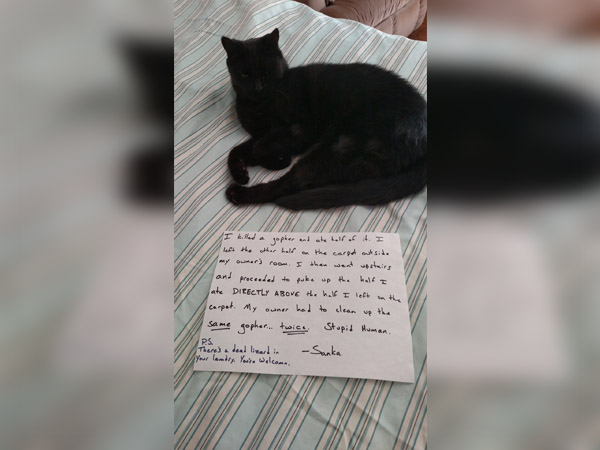 I killed a gopher and ate half of it. I
left the other half on the carpet outside
my owner's room. I then went upstairs
and proceeded to puke up the half I
ate DIRECTLY ABOVE the half I left on the
carpet. My owner had to clean up the
same gopher... twice. Stupid Human.
—Sanka
P.S.
There's a dead lizard in
your laundry. You're Welcome.